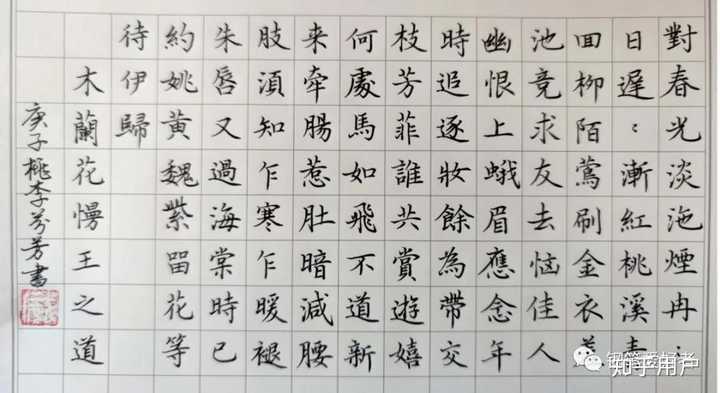 對春光淡沲煙冉：
日遲：漸紅桃溪
囬柳陌鶯刷金衣
池竞求友去惱佳人
幽恨上蛾眉應念年
時追逐妝餘為帶交
枝芳菲誰共賞遊嬉
何處馬如飛不道新
来牽腸惹肚暗減腰
肢須知乍寒乍暖褪
朱唇又過海棠時已
約姚黃魏紫留花等
待伊歸
木蘭花慢王之道
庚子桃李芬芳書
知乎用户